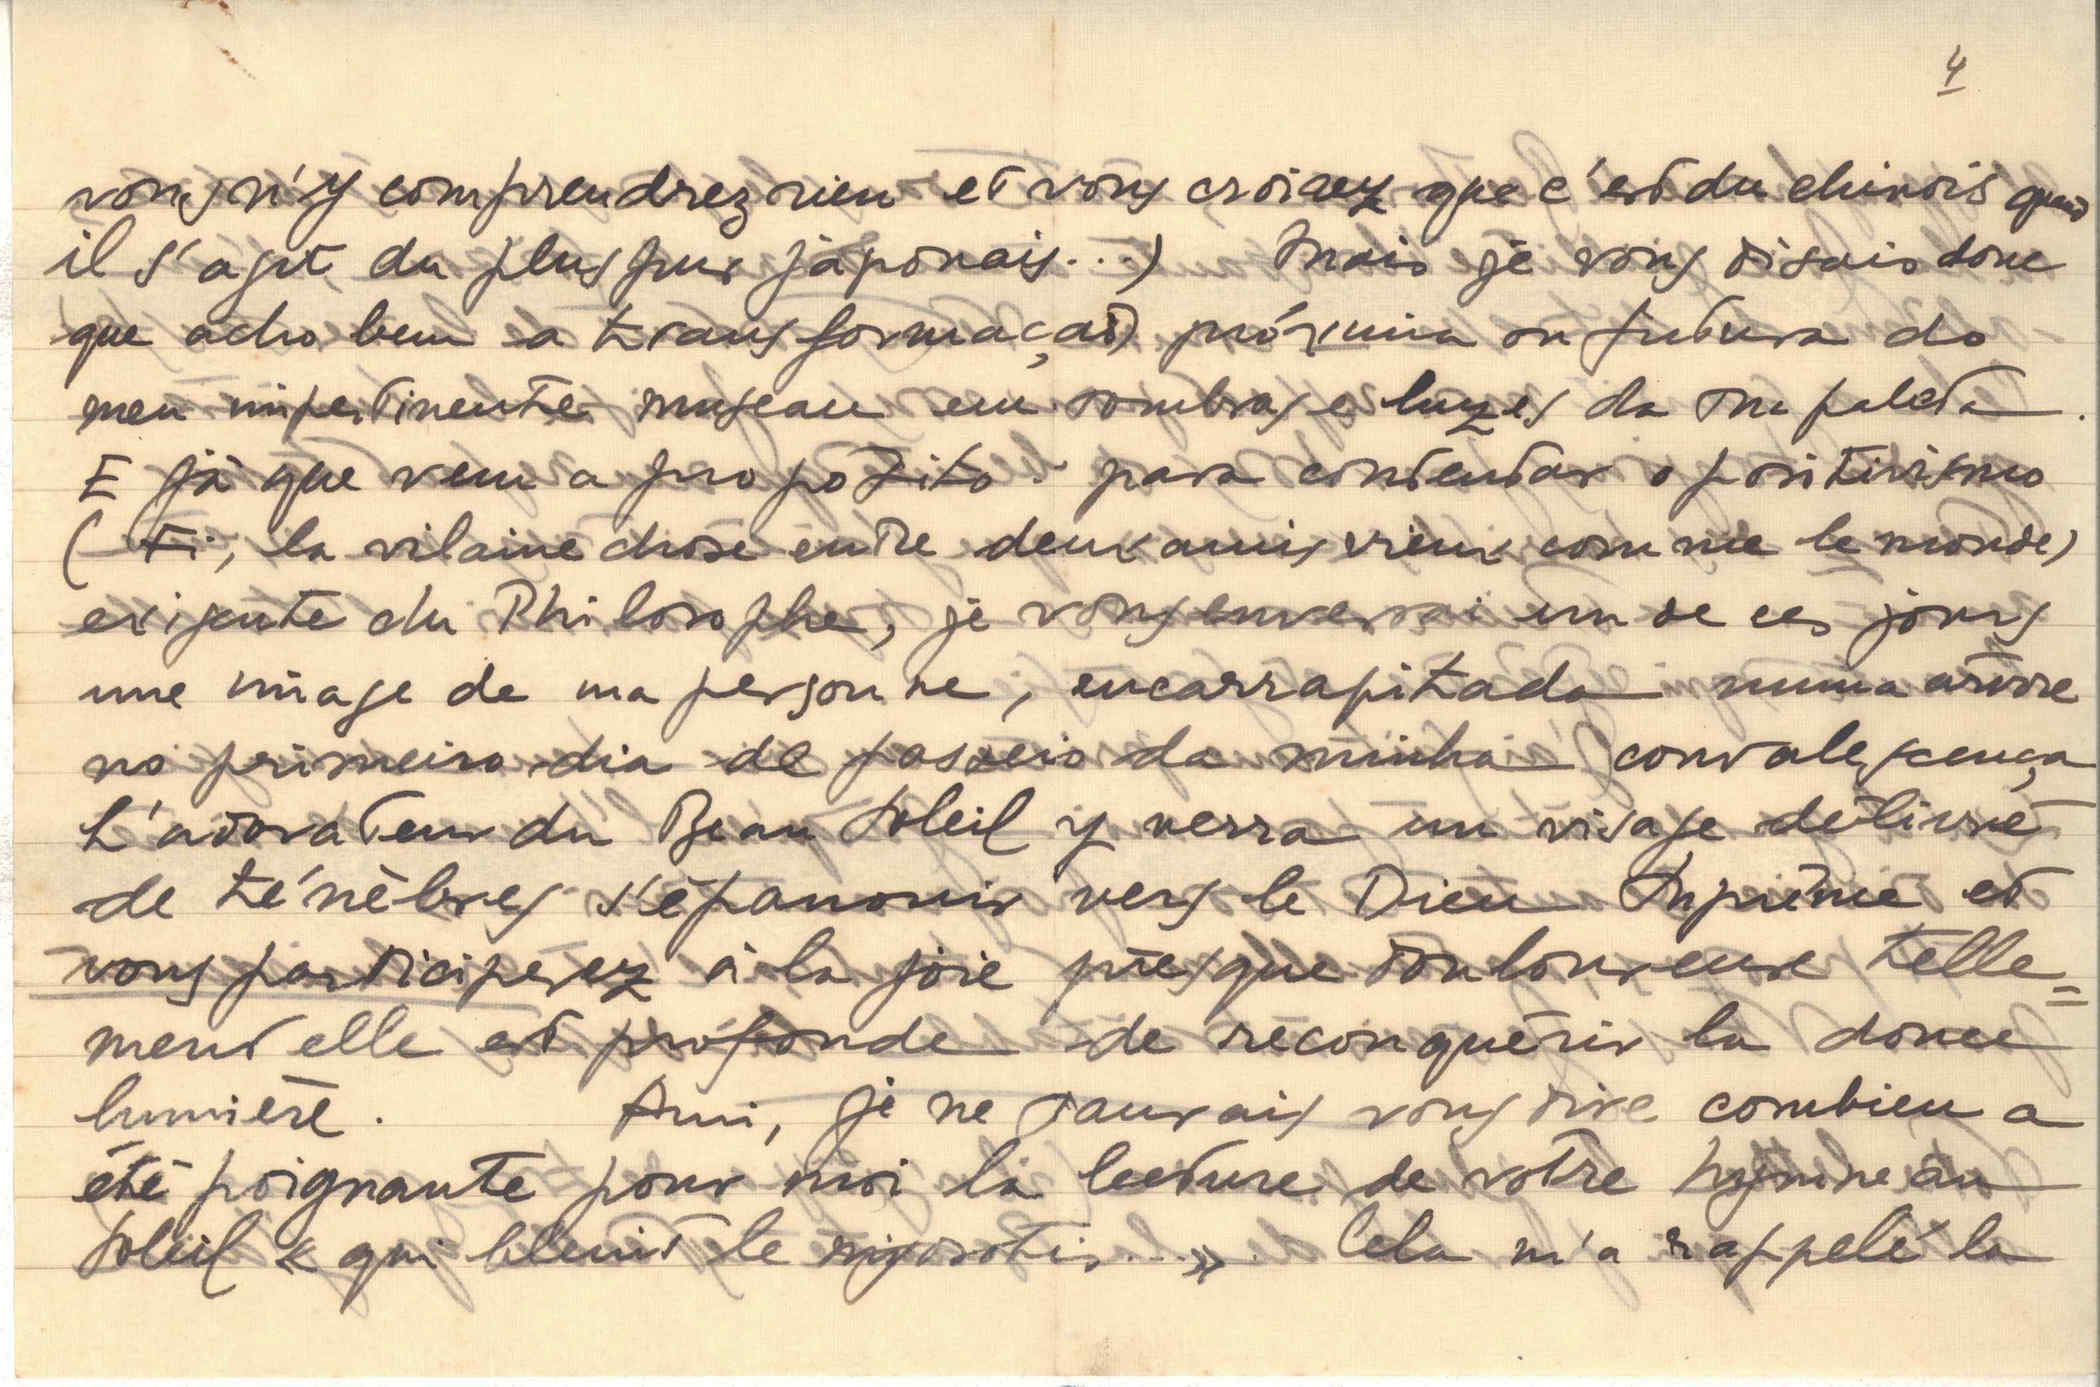 4
vous n'y comprendrez rien et vous croirez que c'est du chinois quand
il s'agit du plus pur japonais...) Mais je vous disais donc
que acho bem a transformação próxima ou futura do
meu impertinente museau em sombras e luzes da sua paleta.
E já que vem a propózito : para contentar o positivismo
(Fi, la vilaine chose entre deux amis vieux comme le monde)
exigente du Philosophe, je vous enverrai un de ces jours
une image de ma personne, encarrapitada numa arvore
no primeiro dia de passeio da minha convalescença
L'adorateur du Beau Soleil y verra un visage délivré
de ténèbres s'épanouir vers le Dieu Suprême et
vous participerez à la joie presque douloureuse telle=
ment elle est profonde de reconquérir la douce
lumière. Ami, je ne saurais vous dire combien a
été poignante pour moi la lecture de votre hymne au
Soleil « qui bleuit le myosotis... » Cela m'a rappelé la